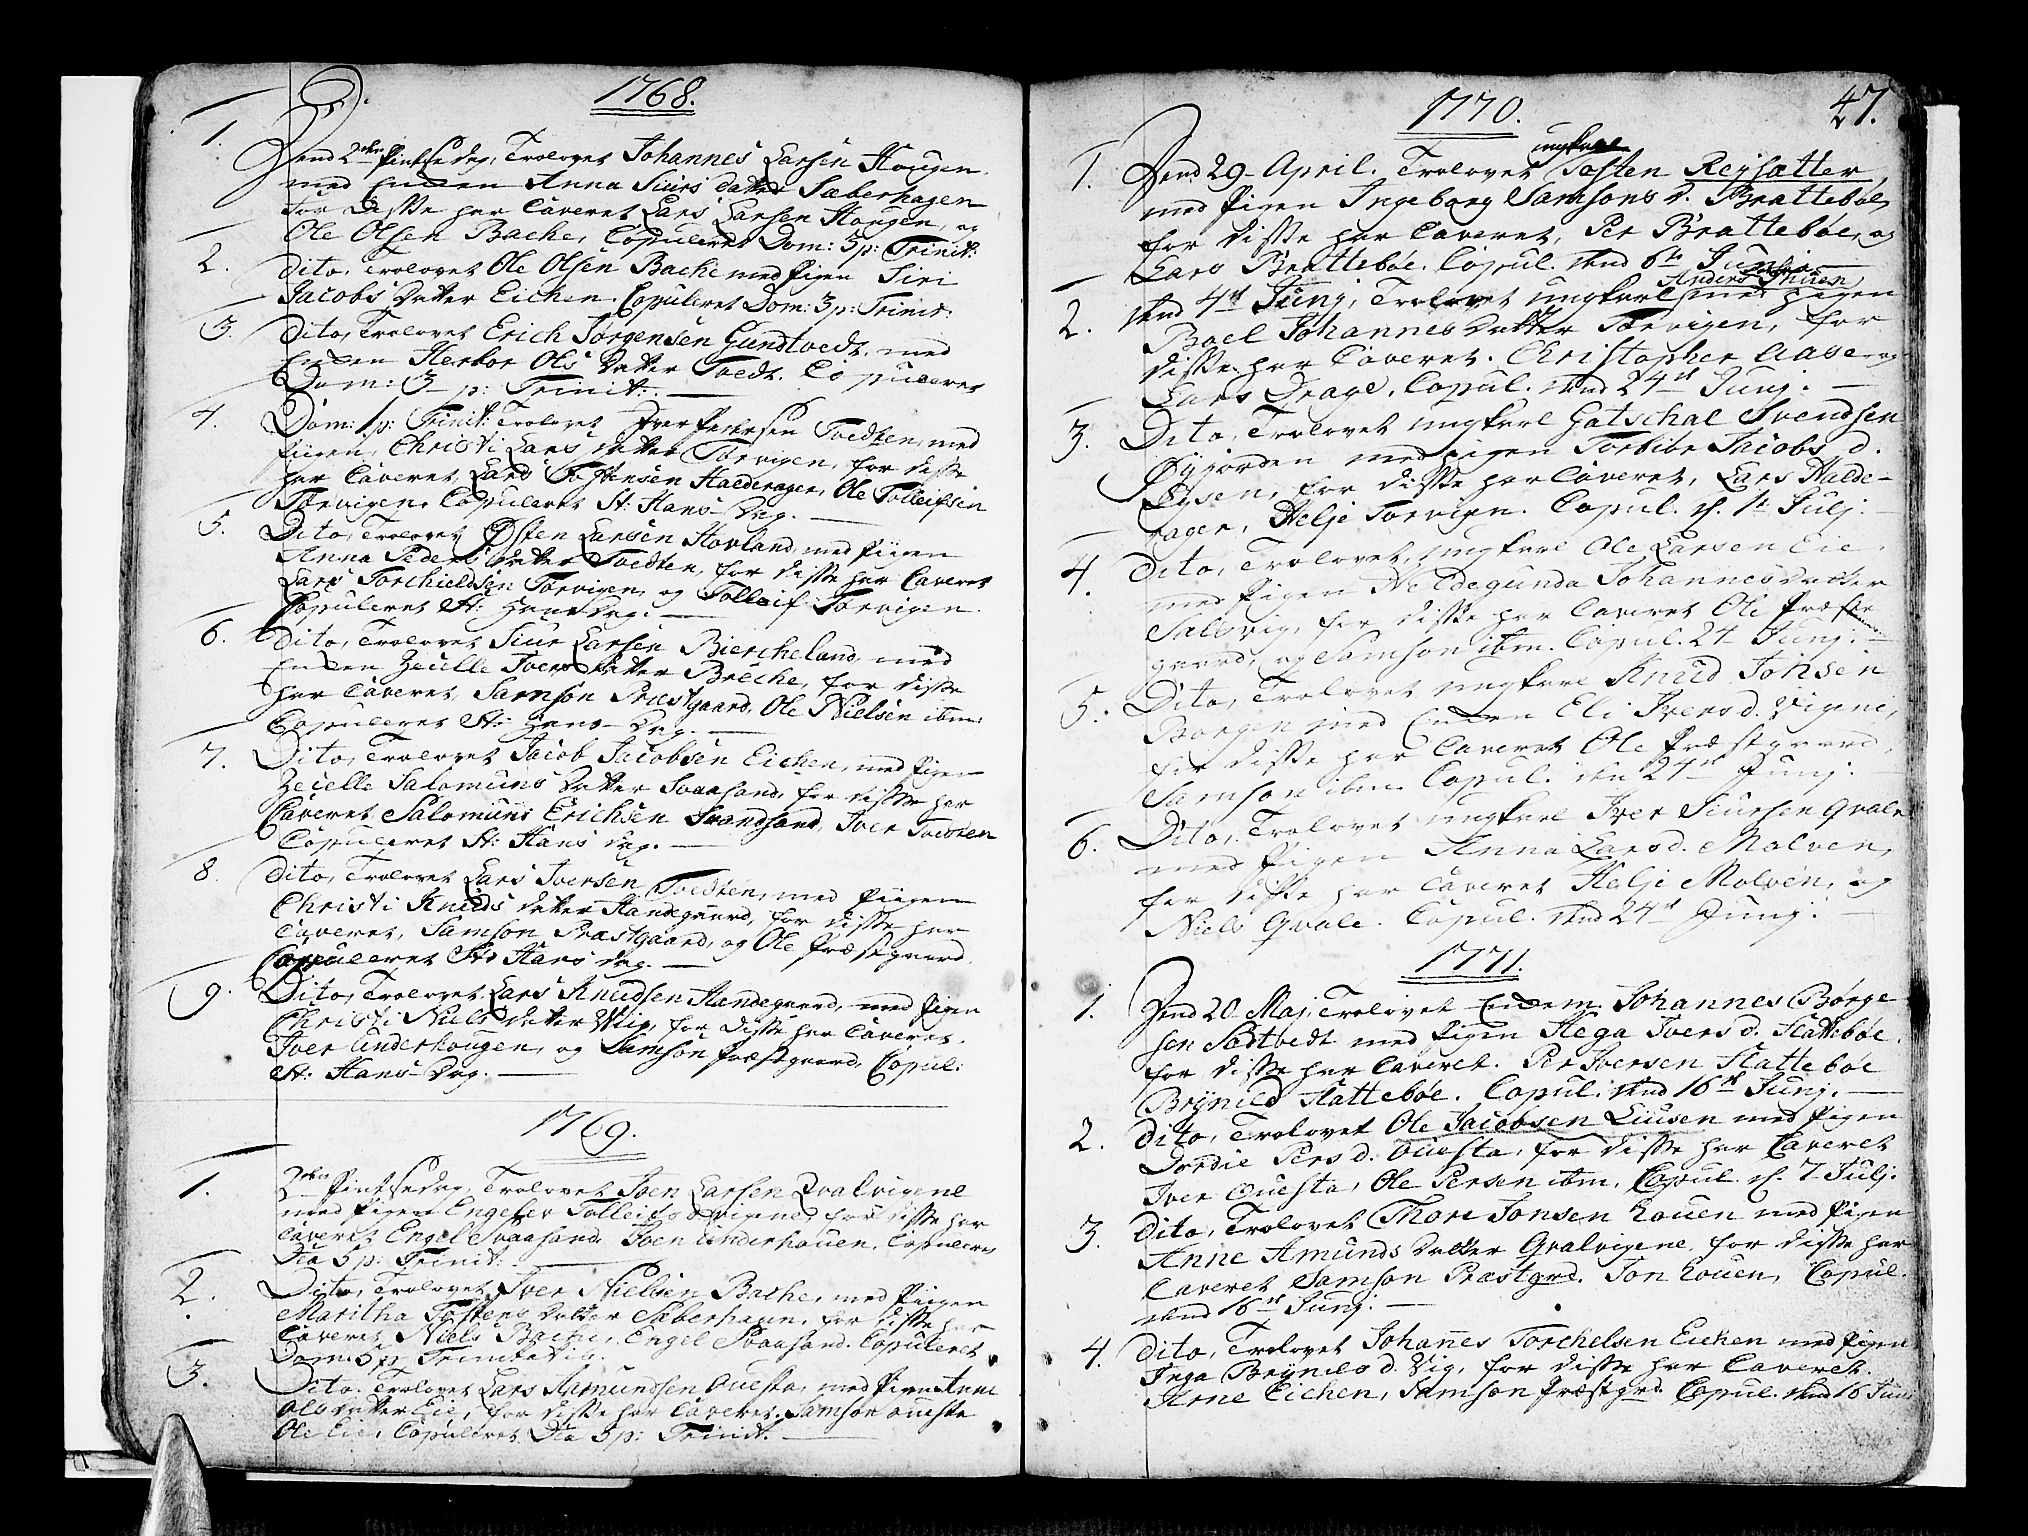 1768.
1. Dend 2den Pintsedag, Trolovet Johannes Larsen Hougen
med Enken Anna Siurs datter Sæberhagen
for Disse har Caveret Lars Larsen Hougen, og
Ole Olsen Bache, Copuleret Dom: 3 p: Trinit:
2. Dito, Trolovet Ole Olsen Bache med Pigen Siri
Jacobs Datter Eichen. Copuleret Dom: 3 p: Trinit:
3. Dito, Trolovet Erich Jørgensen Gundtvedt. med
Enken Herbor Ols Datter Tvedt. Copuleret
Dom: 3 p: Trinit:
4. Dom: 1 p: Trinit: Trolovet Iver Pedersen Tvedten, med
Piigen, Christi Lars datter Torvigen, for disse
har Caveret, Lars Haldorager, Ole Tolleifsen
Torvigen, Copuleret St: Hans Dag.
5. Dito, Trolovet Østen Larsen Hovland, med Piigen
Anna Peders datter Tvedten, for disse har Caveret
Lars Torchieldsen Torvigen, og Tolleif Torvigen
Copuleret St: Hans Dag.
6. Dito, Trolovet Siur Larsen Biercheland, med
Enken Zecille Ivers datter Breche, for disse
har Caveret, Samson Præstgaard, Ole Nielsen ibm:
Copuleret St: Hans Dag.
7. Dito, Trolovet Jacob Jacobsen Eichen, med Pigen
Zecille Salomuns datter Svaasand, for disse har
Caveret Salomuns Erichsen Svaasand, Iver Tvedten
Copuleret St: Hans dag.
8. Dito, Trolovet Lars Iversen Tvedten, med Piigen
Christi Knuds datter Handegaard, for disse har
Caveret, Samson Præstgaard, og Ole Præstgaard.
Copuleret St: Hans dag.
9. Dito, Trolovet Lars Knudsen Handegaard, med Pigen
Christi Niels datter Wiig, for disse har Caveret.
Iver Underhougen, og Samson Præstgaard, Copul:
St: Hans Dag.
1769.
1. 2den Pintsedag, Trolovet Joen Larsen Qvalvigene
med Pigen Engelev Tolleifs d Vigene, for disse har
Caveret Engel Svaasand, Joen Underhouen, Copuleret
Dca 5 p: Trinit:
2. Dito, Trolovet Iver Nielsen Bache, med Piigen
Maritha Tostens datter Sæberhagen, for disse har
Caveret Niels Bache, Engel Svaasand. Copuleret
Dom: 5 p Trinitatis.
3. Dito. Trolovet Lars Aamundsen Ouesta, med Pigen Anne
Ols datter Eie, for disse har Caveret. Samson oueste
Ole Eie, Copuleret Dca 5 p: Trinit.
47.
1770.
1. Dend 29 April. Trolovet ungkarl Tosten Reysæter
med Pigen Ingeborg Samsons d. Bratteboe,
for disse har Caveret, Per Bratteboe, og
Lars Bratteboe. Copul. dend 6te Junj
2. dend 4de Junj, Trolovet ungkarl Anders Thuen med pigen
Boel Johannes datter Torvigen, for
disse har Caveret. Christopher Aase og
Lars Drage, Copul. dend 24de Junj.
3. Dito, Trolovet ungkarl Gotschal Svendsen
Øyjorden med pigen Torbior Jacobs d.
for disse har Caveret, Lars Halde-
rager, Helje Torvigen. Copul. d. 1te Julj.
4. Dito, Trolovet, ungkarl Ole Larsen Eie,
med Pigen Heldegunda Johannes datter
Salsvig, for disse har Caveret Ole Præste
gaard, og Samson ibm. Copul. 24 Junj.
5. Dito, Trolovet ungkarl Knud Johsen
Borgen med Enken Eli Ivers d. Vigene,
for disse har Caveret Ole Præstgaard,
Samson ibm Copul. den 24de Junj.
6. Dito, Trolovet ungkarl Iver Siursen Qvale
med Pigen Anna Lars d. Molven,
for disse har Caveret Helje Molven, og
Niels Qvale. Copul. dend 24de Junj.
1771.
1. Dend 20 Maj, Trolovet Enkem. Johannes Børge
sen Sodtvedt med Pigen Hega Ivers d. Flatteboe.
for disse har Caveret. Per Iversen Flattebøe
Brynild Flattebøe. Copul. dend 16de Junj.
2. Dito, Trolovet Ole Jacobsen Liusen med Pigen
Jordie Pers d. Ouesta, for disse har Caveret
Iver Ouesta, Ole Persen ibm, Copul. d. 7 Julj.
3. Dito, Trolovet Thore Jonsen Louen med Pigen
Anne Amunds datter Qvalvigene, for disse har
Caveret Samson Præstgrd. Jon Louen, Copul.
dend 16de Junj.
4. Dito, Trolovet Johanes Torchelsen Eichen med Pigen
Inga Brynils d. Vig, for disse har Caveret.
Arne Eichen, Samson Præstgrd. Copul. dend 16 Junj